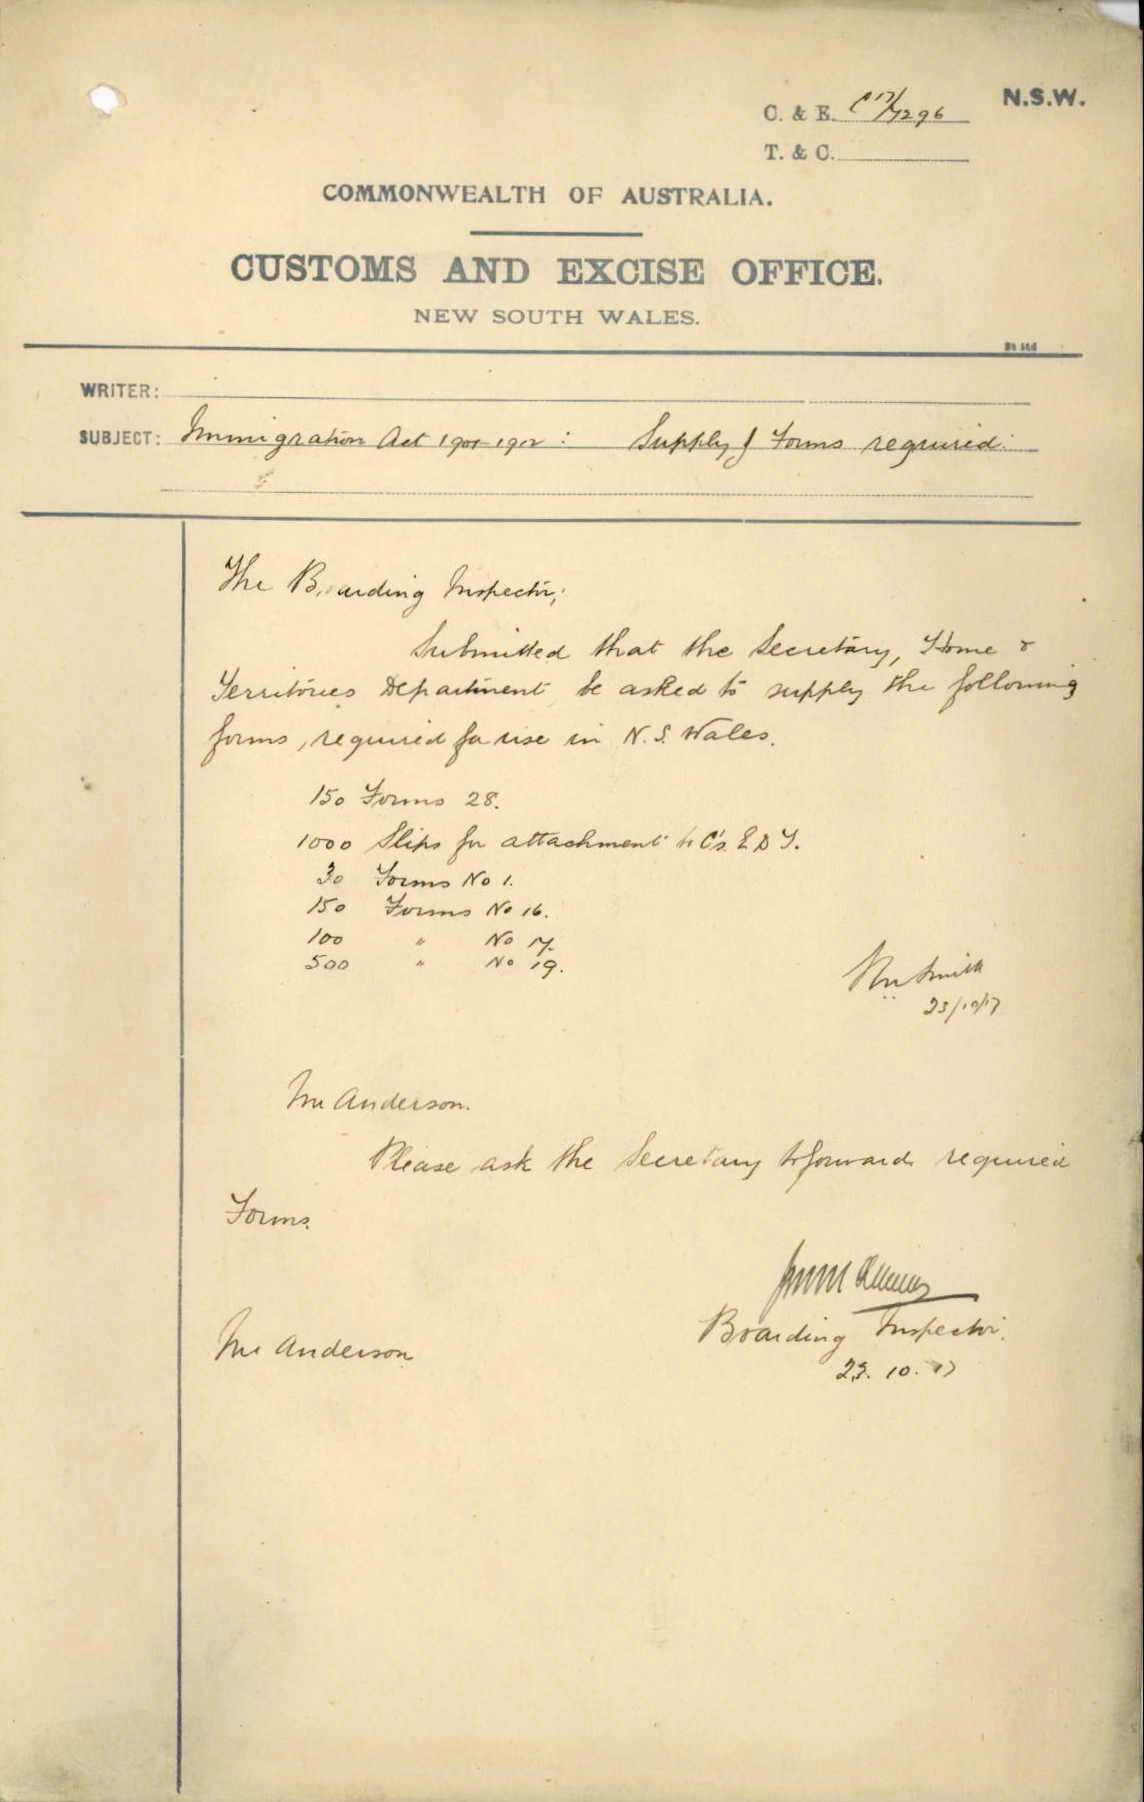 N.S.W.
C. & E. C 17/7296
T. & C.
COMMONWEALTH OF AUSTRALIA.
CUSTOMS AND EXCISE OFFICE.
NEW SOUTH WALES.
WRITER:
SUBJECT: Immigration Act 1901-1912: Supply of Forms required.
The Boarding Inspector;
Submitted that the Secretary, Home &
Territories Department be asked to supply the following
forms, required for use in N. S. Wales.
150 Forms 28.
1000 Slips for attachment to C's. E D T.
30 Forms No 1.
150 Forms No 16.
100 " No 17.
500 " No 19.
Smith
23/10/17
Mr Anderson.
Please ask the Secretary to forward required
Forms.
Boarding Inspector.
23. 10. 17
Mr Anderson